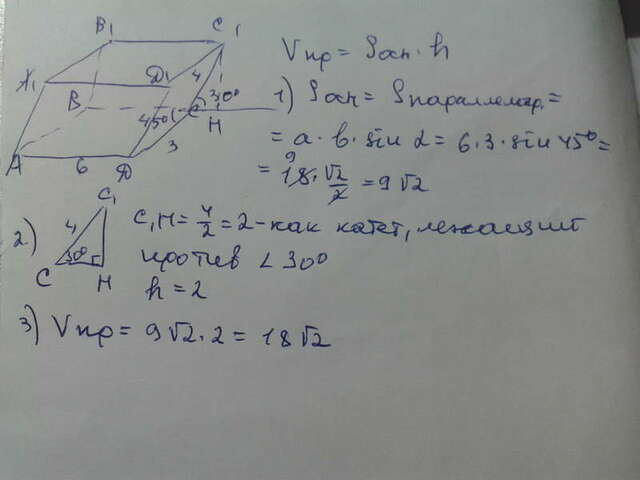 B₁ C₁
A₁ D₁ 4 30°
B C H
45° 3
A 6 D
Vпр = Sосн · h
1) Sосн = Sпараллелогр. =
= a · b · sin α = 6 · 3 · sin 45° =
= 18 · √2/2 = 9√2
9
2) C₁ 4 30° C H
C₁H = 4/2 = 2 - как катет, лежащий
против ∠30°
h = 2
3) Vпр = 9√2 · 2 = 18√2